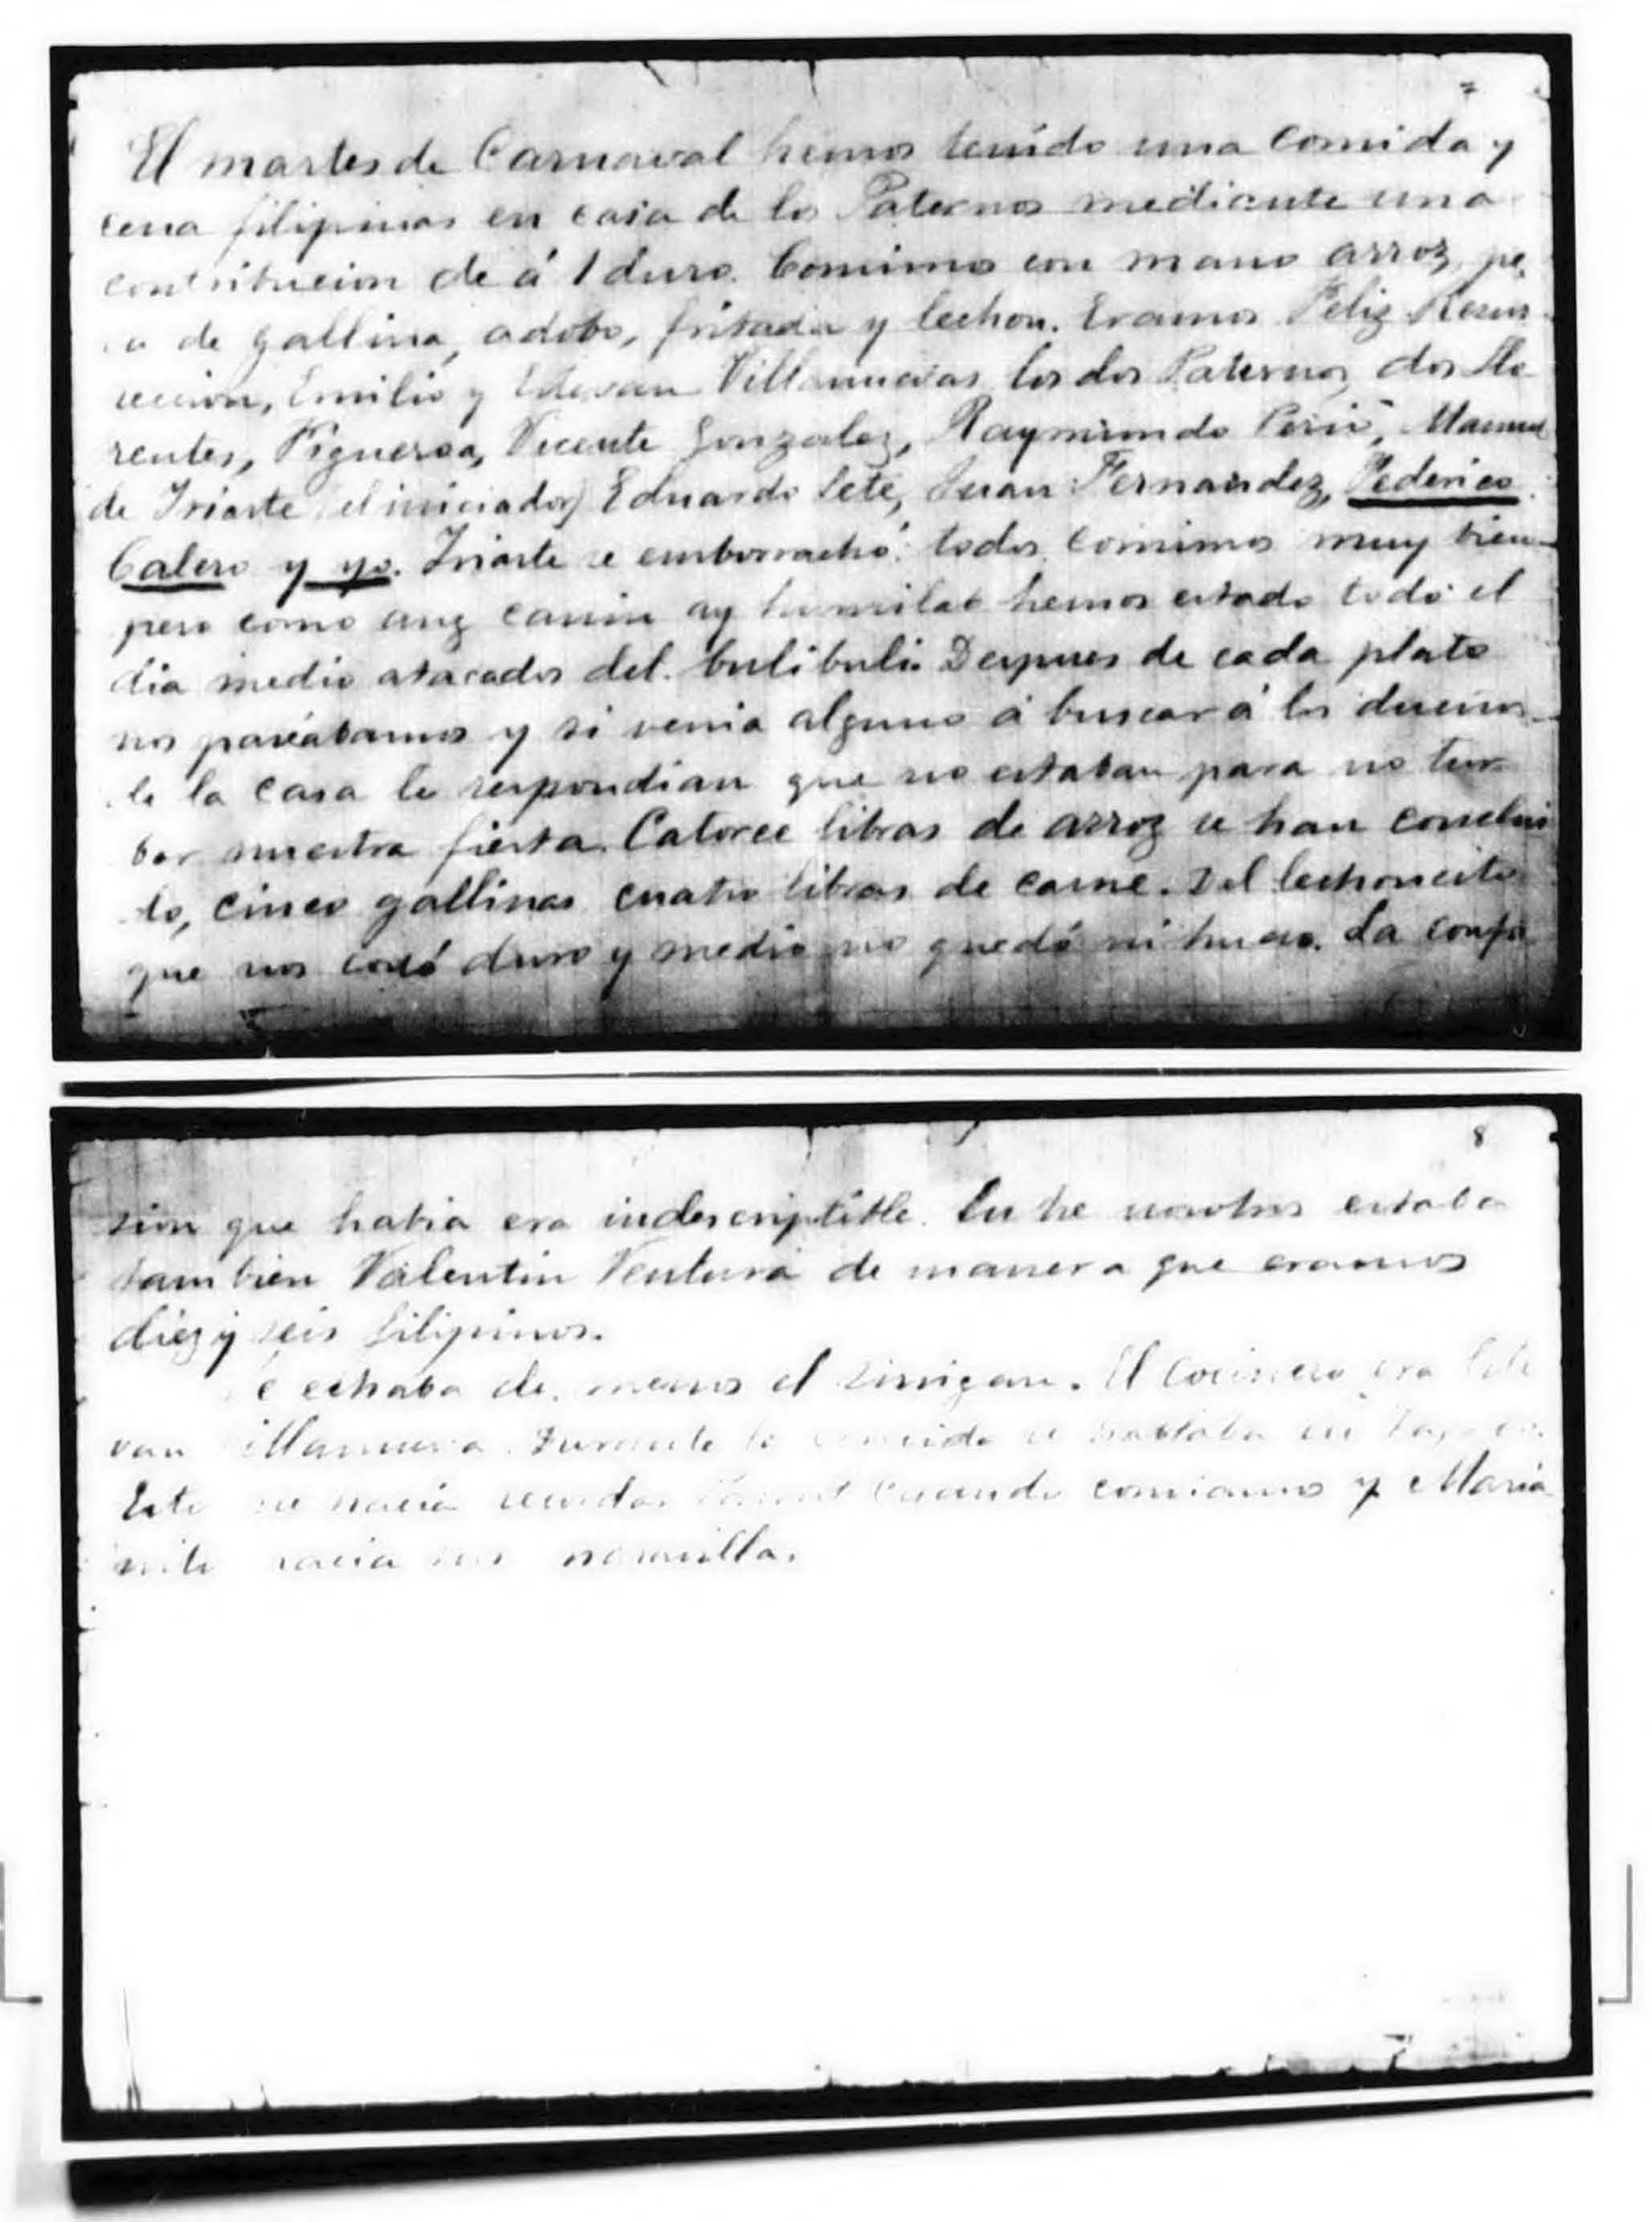 7
El martes de Carnaval hemos tenido una comida y
cena filipinas en casa de los Paternos mediante una
contribucion de á 1 duro. Comimos con mano arroz, pe
de gallina, adobo, fritada y lechon. Eramos Feliz Resur
reccion, Emilio y Estevan Villanuevas, los dos Paternos, dos Llo
rentes, Figueroa, Vicente Gonzalez, Raymundo Perió, Manuel
de Iriarte (el iniciador) Eduardo Lete, Juan Fernandez, Federico
Calero y yo. Iriarte se emborrachó: todos comimos muy bien
pero como ang canin ay humilab hemos estado todo el
dia medio atacados del bulibuli. Despues de cada plato
nos paseábamos y si venia alguno á buscar á los dueños
de la casa le respondian que no estaban para no tur
bar nuestra fiesta. Catorce libras de arroz se han conclui
do, cinco gallinas cuatro libras de carne. Del lechoncito
que nos costó duro y medio no quedó ni hueso. La confu
8
sion que habia era indescriptible. Entre nosotros estaba
tambien Valentin Ventura de manera que eramos
diez y seis filipinos.
echaba de menos el sinigan. El cocinero era Este
van Villanueva. Durante la comida se hablaba en
Esto me hacia recordar cuando comiamos y Maria
nito hacia sus morcilla.